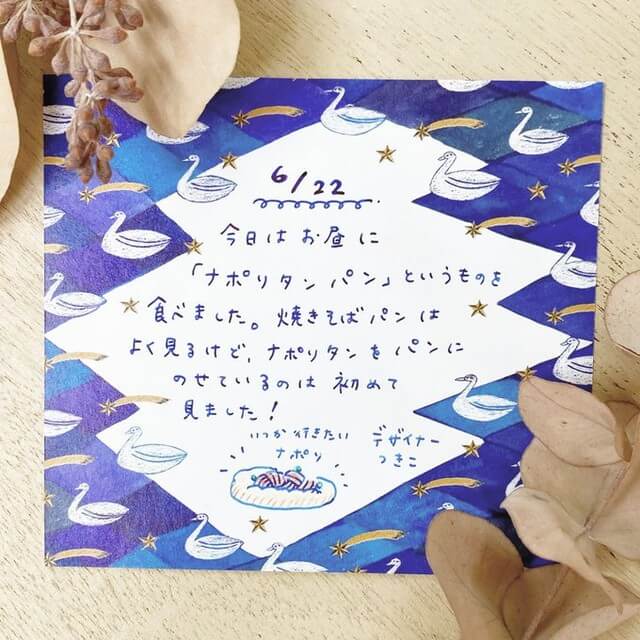 6/22
今日はお昼に
「ナポリタンパン」というものを
食べました。焼きそばパンは
よく見るけど、ナポリタンをパンに
のせているのは初めて
見ました！
いつか行きたい
ナポリ
デザイナー
つきこ